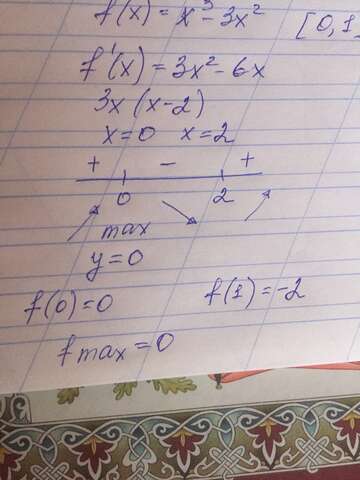 f(x) = x³ - 3x² [0, 1
f'(x) = 3x² - 6x
3x (x-2)
x=0 x=2
+ - +
0 2
max
y=0
f(0)=0 f(1)=-2
f max=0